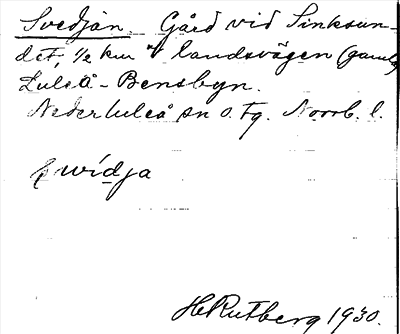 Svedjan. Gård vid Sinksun-
det, 1/2 km V landsvägen (gamla)
Luleå - Bensbyn.
Nederluleå sn o. tg. Norrb. l.
swidja
H Rutberg 1930.